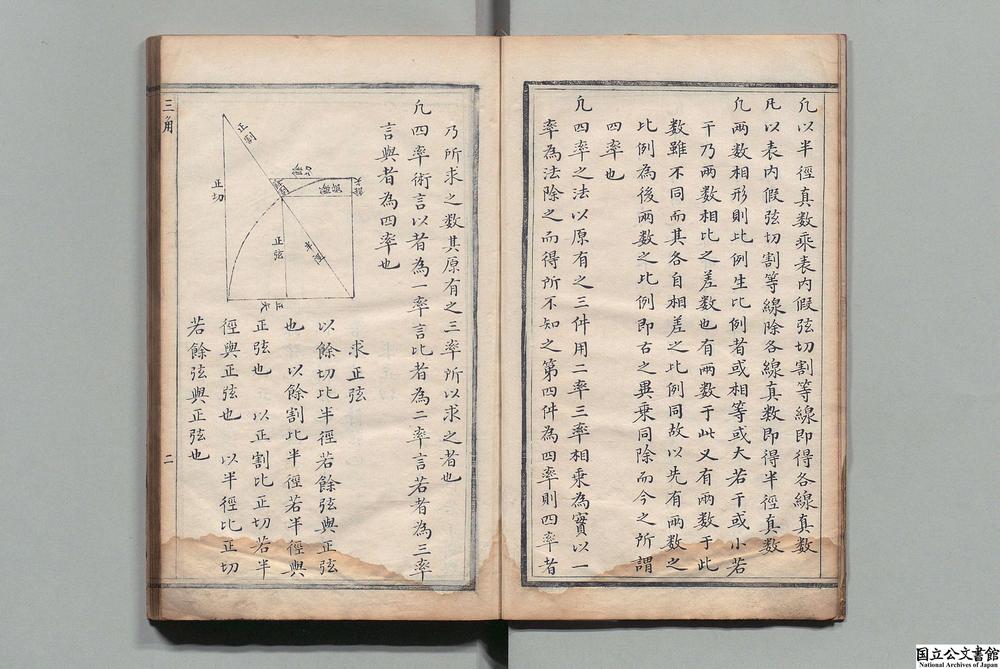 凡以半徑真數乘表內假弦切割等線即得各線真數
凡以表內假弦切割等線除各線真數即得半徑真數
凡兩數相形則比例生比例者或相等或大若干或小若
干乃兩數相比之差數也有兩數于此又有兩數于此
數雖不同而其各自相差之比例同故以先有兩數之
比例為後兩數之比例即古之異乗同除而今之所謂
四率也
凡四率之法以原有之三件用二率三率相乗為實以一
率為法除之而得所不知之第四件為四率則四率者
乃所求之数其原有之三率所以求之者也
凡四率術言以者為一率言比者為二率言若者為三率
言與者為四率也
求正弦
以餘切比半徑若餘弦與正弦
也 以餘割比半徑若半徑與
正弦也 以正割比正切若半
徑與正弦也 以半徑比正切
若餘弦與正弦也
正割
正切
餘切
餘割
餘弦
正弦
半徑
正矢
餘矢
三角
二
国立公文書館
National Archives of Japan